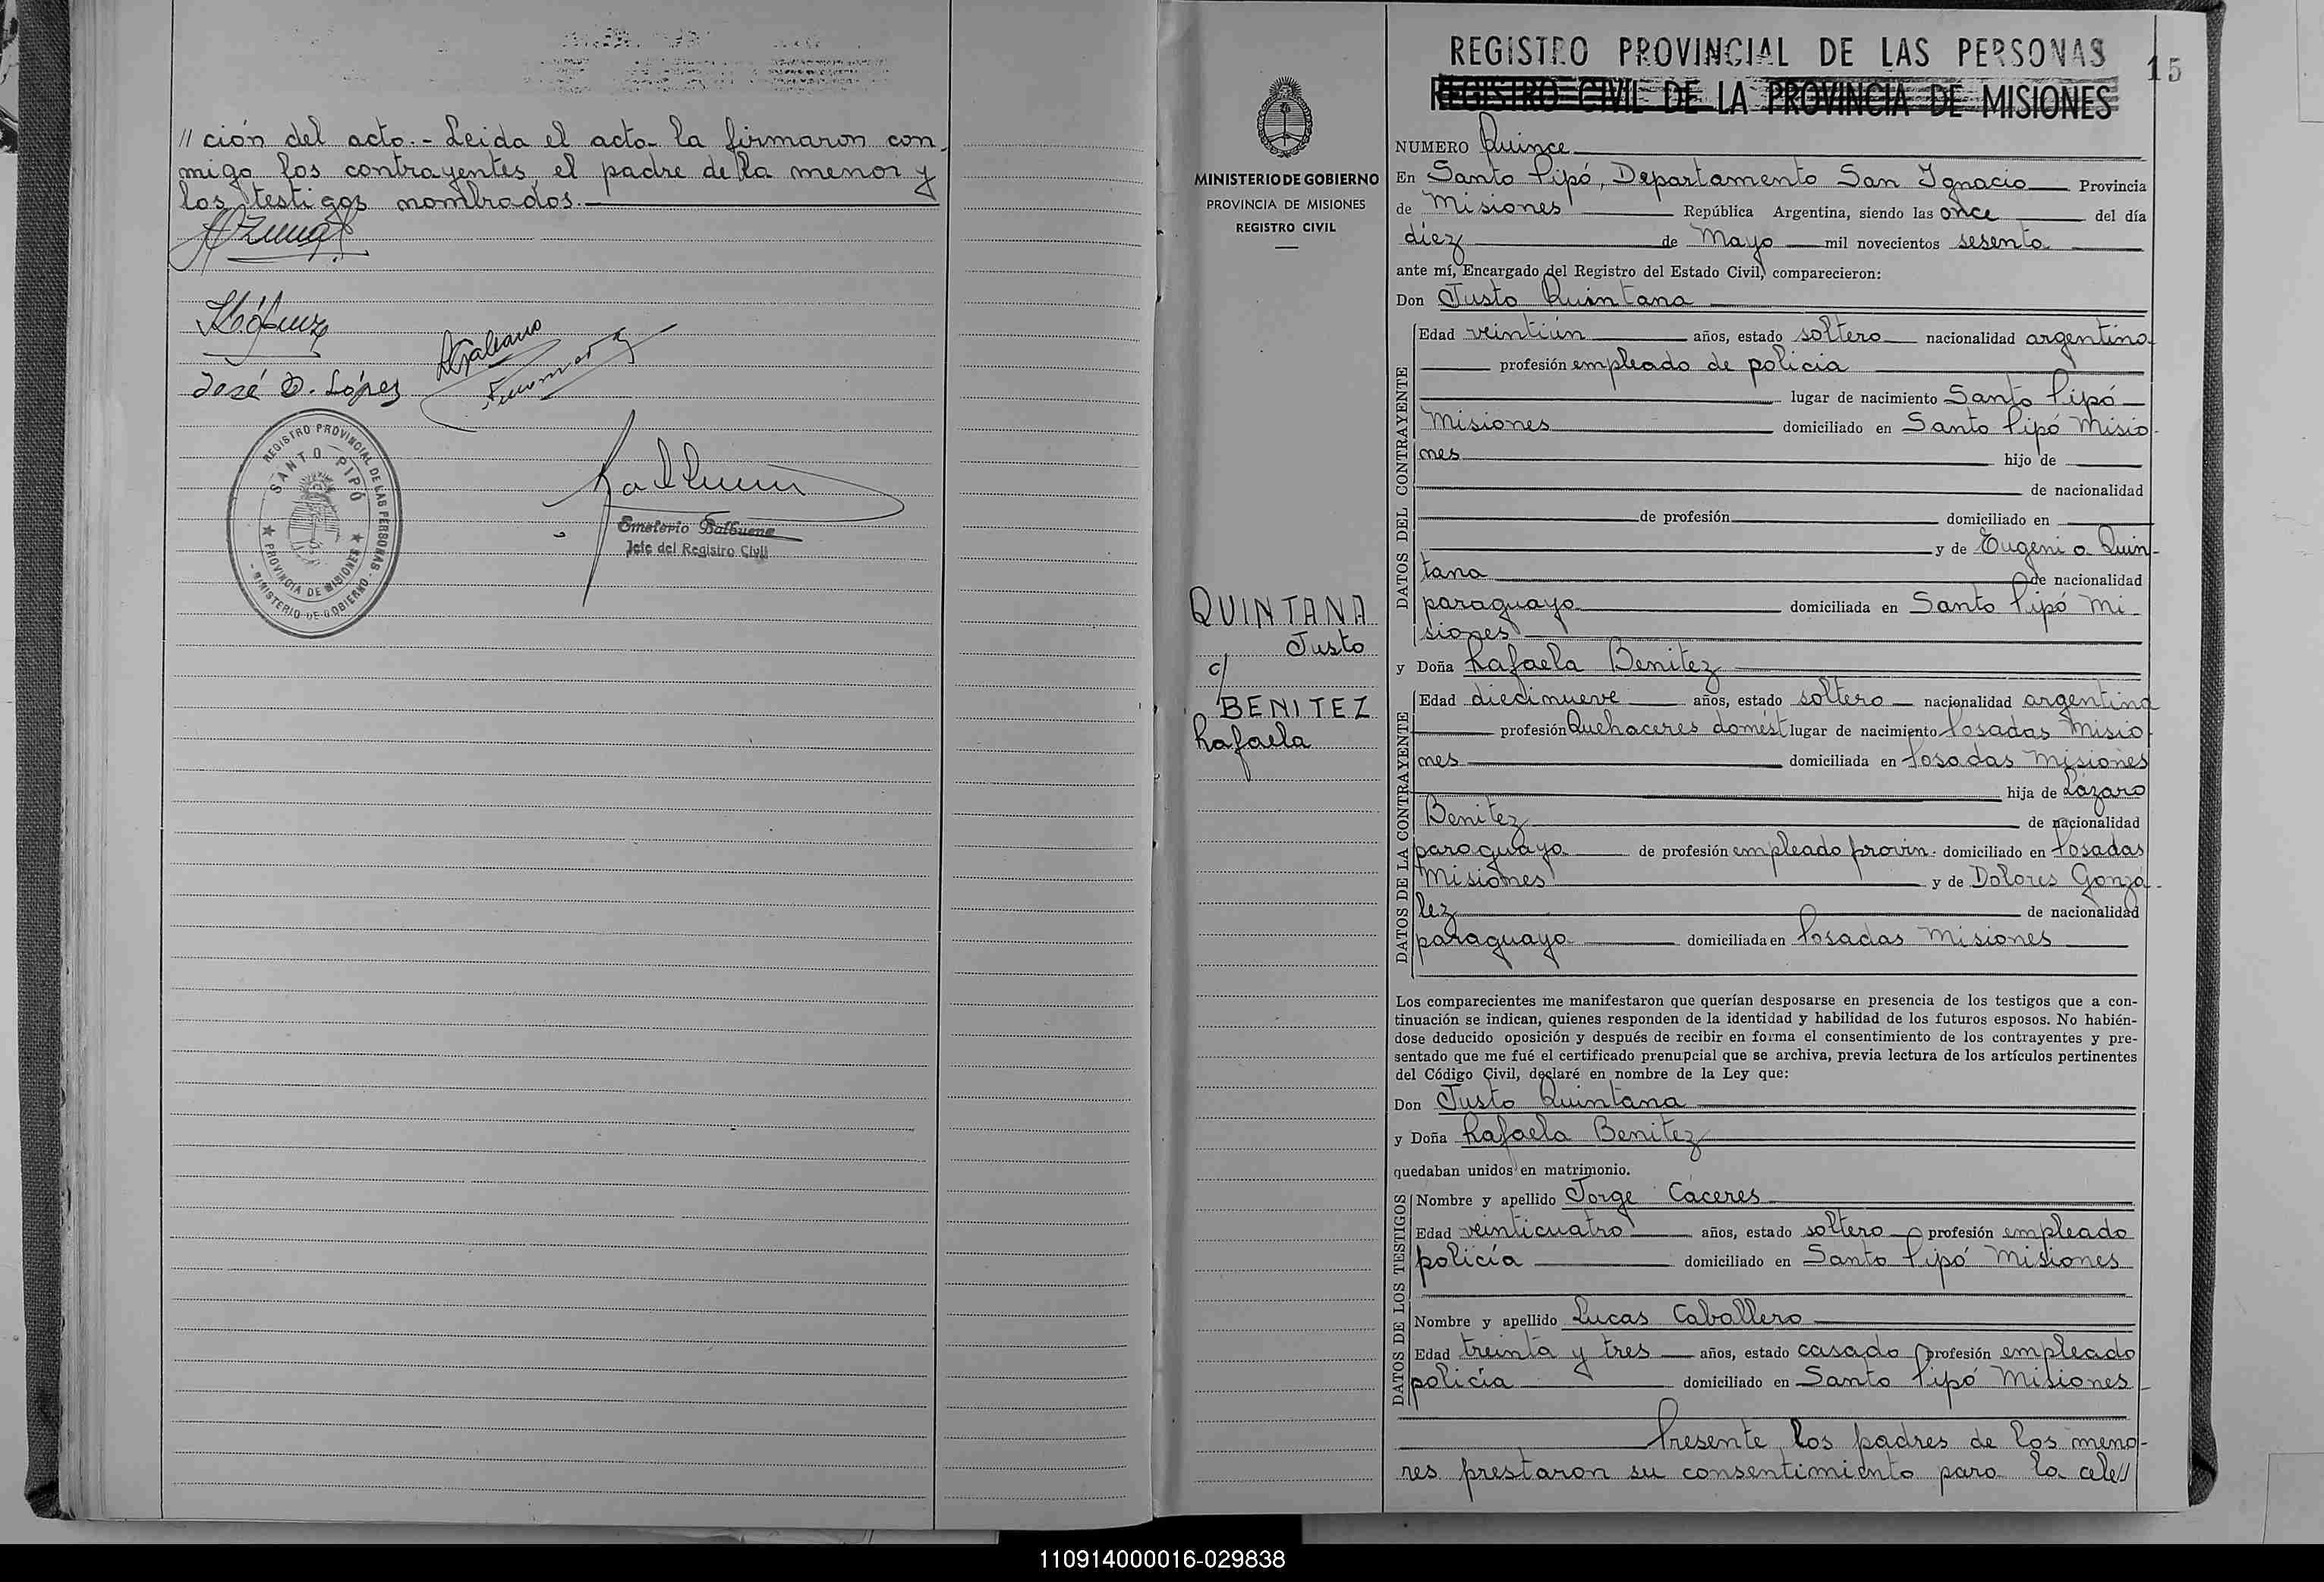 // ción del acto.- Leida el acta la firmaron con-
migo los contrayentes el padre de la menor y
los testigos nombrados.-
José D. López
REGISTRO PROVINCIAL DE LAS PERSONAS
SANTO PIPÓ
PROVINCIA DE MISIONES
MINISTERIO DE GOBIERNO
Emeterio Balbuena
Jefe del Registro Civil
MINISTERIO DE GOBIERNO
PROVINCIA DE MISIONES
REGISTRO CIVIL
QUINTANA
Justo
c/
BENITEZ
Rafaela
REGISTRO PROVINCIAL DE LAS PERSONAS
15
REGISTRO CIVIL DE LA PROVINCIA DE MISIONES
NUMERO Quince
En Santo Pipó, Departamento San Ignacio Provincia
de Misiones República Argentina, siendo las once del día
diez de Mayo mil novecientos sesenta
ante mí, Encargado del Registro del Estado Civil, comparecieron:
Don Justo Quintana
DATOS DEL CONTRAYENTE
Edad veintiún años, estado soltero nacionalidad argentino
profesión empleado de policia
lugar de nacimiento Santo Pipó
Misiones domiciliado en Santo Pipó Misio-
nes hijo de
de nacionalidad
de profesión domiciliado en
y de Eugenia Quin-
tana de nacionalidad
paraguaya domiciliada en Santo Pipó Mi-
siones
y Doña Rafaela Benitez
DATOS DE LA CONTRAYENTE
Edad diecinueve años, estado soltera nacionalidad argentina
profesión Quehaceres domést lugar de nacimiento Posadas Misio
nes domiciliada en Posadas Misiones
hija de Lázaro
Benitez de nacionalidad
paraguaya de profesión empleado provin. domiciliado en Posadas
Misiones y de Dolores Gonzá-
lez de nacionalidad
paraguaya domiciliada en Posadas Misiones
Los comparecientes me manifestaron que querían desposarse en presencia de los testigos que a con-
tinuación se indican, quienes responden de la identidad y habilidad de los futuros esposos. No habién-
dose deducido oposición y después de recibir en forma el consentimiento de los contrayentes y pre-
sentado que me fué el certificado prenupcial que se archiva, previa lectura de los artículos pertinentes
del Código Civil, declaré en nombre de la Ley que:
Don Justo Quintana
y Doña Rafaela Benitez
quedaban unidos en matrimonio.
DATOS DE LOS TESTIGOS
Nombre y apellido Jorge Cáceres
Edad veinticuatro años, estado soltero profesión empleado
policía domiciliado en Santo Pipó Misiones
Nombre y apellido Lucas Caballero
Edad treinta y tres años, estado casado profesión empleado
policía domiciliado en Santo Pipó Misiones
Presente los padres de los meno-
res prestaron su consentimiento para la cele//
110914000016-029838